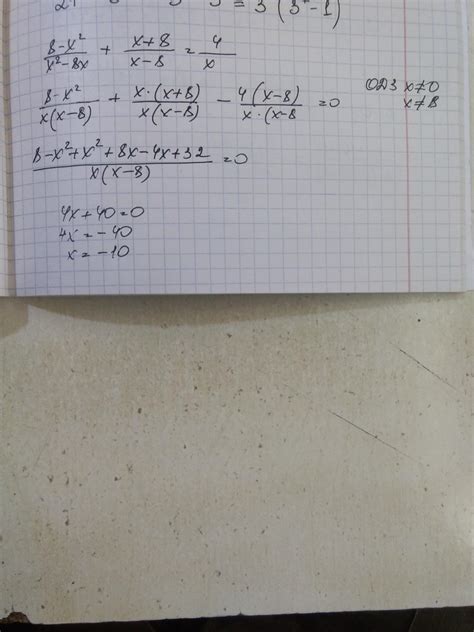 = 3 (3 - 1)
8-x²/x²-8x + x+8/x-8 = 4/x
8-x²/x(x-8) + x·(x+8)/x(x-8) - 4(x-8)/x·(x-8 = 0 ОДЗ x≠0
x≠8
8-x²+x²+8x-4x+32/x(x-8) = 0
4x+40=0
4x=-40
x=-10